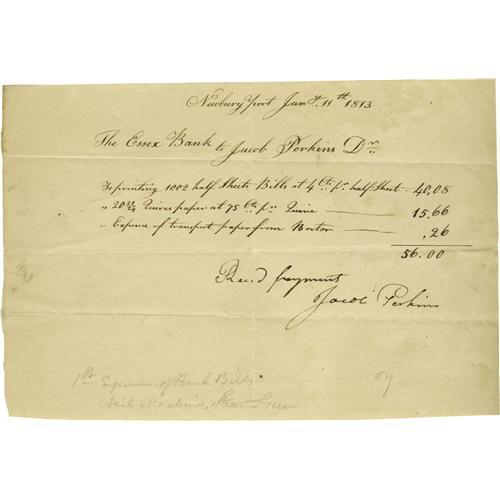 Newbury Port Jany. 11th 1813
The Essex Bank to Jacob Perkins Dr.
To printing 1002 half Sheets Bills at 4 Cts pr. half Sheet - 40,08
" 20 Quires paper at 75 Cts pr. Quire 15.66
" Expence of transport paper from Boston ,26
56.00
Rec.d payment
Jacob Perkins
1st Expence of Bank Bills